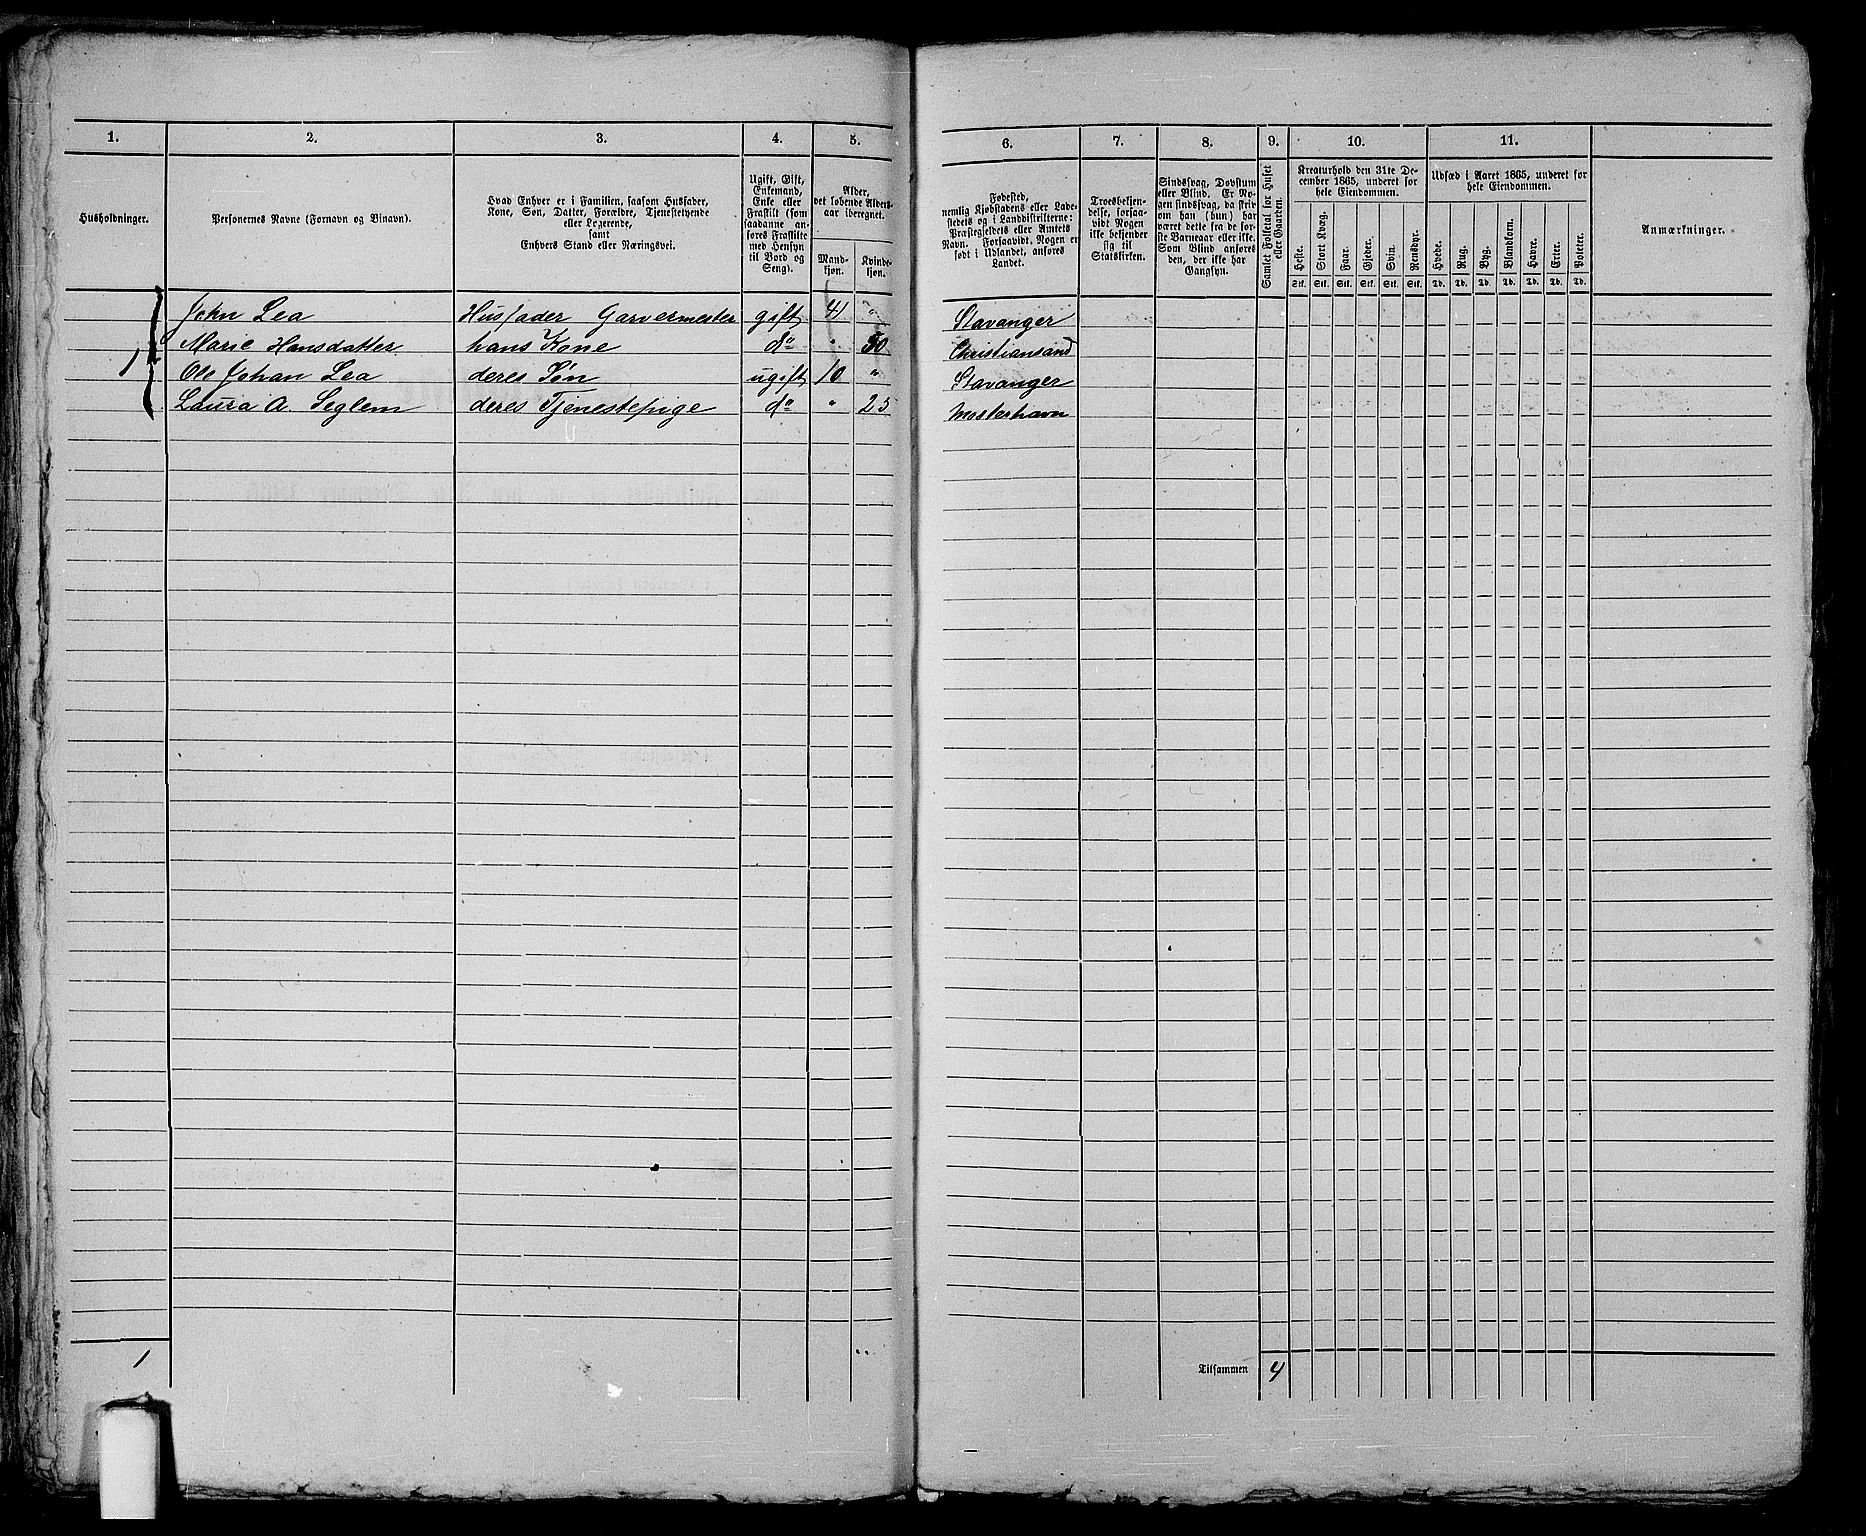 1. 2. 3. 4. 5. 6. 7. 8. 9. 10. 11.
Husholdninger.
Personernes Navne (Fornavn og Binavn).
Hvad Enhver er i Familien, saasom Husfader,
Kone, Søn, Datter, Forældre, Tjenestetyende
eller Logerende,
samt
Enhvers Stand eller Næringsvei.
Ugift, Gift,
Enkemand,
Enke eller
Fraskilt (som
saadanne an-
føres Fraskilte
med Hensyn
til Bord og
Seng).
Alder,
det løbende Alders-
aar iberegnet.
Mand-
kjøn.
Kvinde-
kjøn.
Fødested,
nemlig Kjøbstadens eller Lade-
stedets og i Landdistrikterne:
Præstegjeldets eller Amtets
Navn. Forsaavidt Nogen er
født i Udlandet, anføres
Landet.
Troesbekjen-
delse, forsaa-
vidt Nogen
ikke bekjender
sig til
Statskirken.
Sindssvag, Døvstum
eller Blind. Er No-
gen sindssvag, da skriv
om han (hun) har
været dette fra de før-
ste Barneaar eller ikke.
Som Blind anføres
den, der ikke har
Gangsyn.
Samlet Folketal for Huset
eller Gaarden.
Kreaturhold den 31te De-
cember 1865, underet for
hele Eiendommen.
Heste. Stort Kvæg. Faar. Gjeder. Svin. Rensdyr.
Stk. Stk. Stk. Stk. Stk. Stk.
Udsæd i Aaret 1865, underet for
hele Eiendommen.
Hvede. Rug. Byg. Blandkorn. Havre. Erter. Poteter.
Td. Td. Td. Td. Td. Td. Td.
Anmærkninger.
John Lea Husfader Garvermester gift 41 " Stavanger
Marie Hansdatter hans Kone do " 50 Christiansand
1 Ole Johan Lea deres Søn ugift 10 " Stavanger
Laura A Seglem deres Tjenestepige do " 25
1 Tilsammen 4